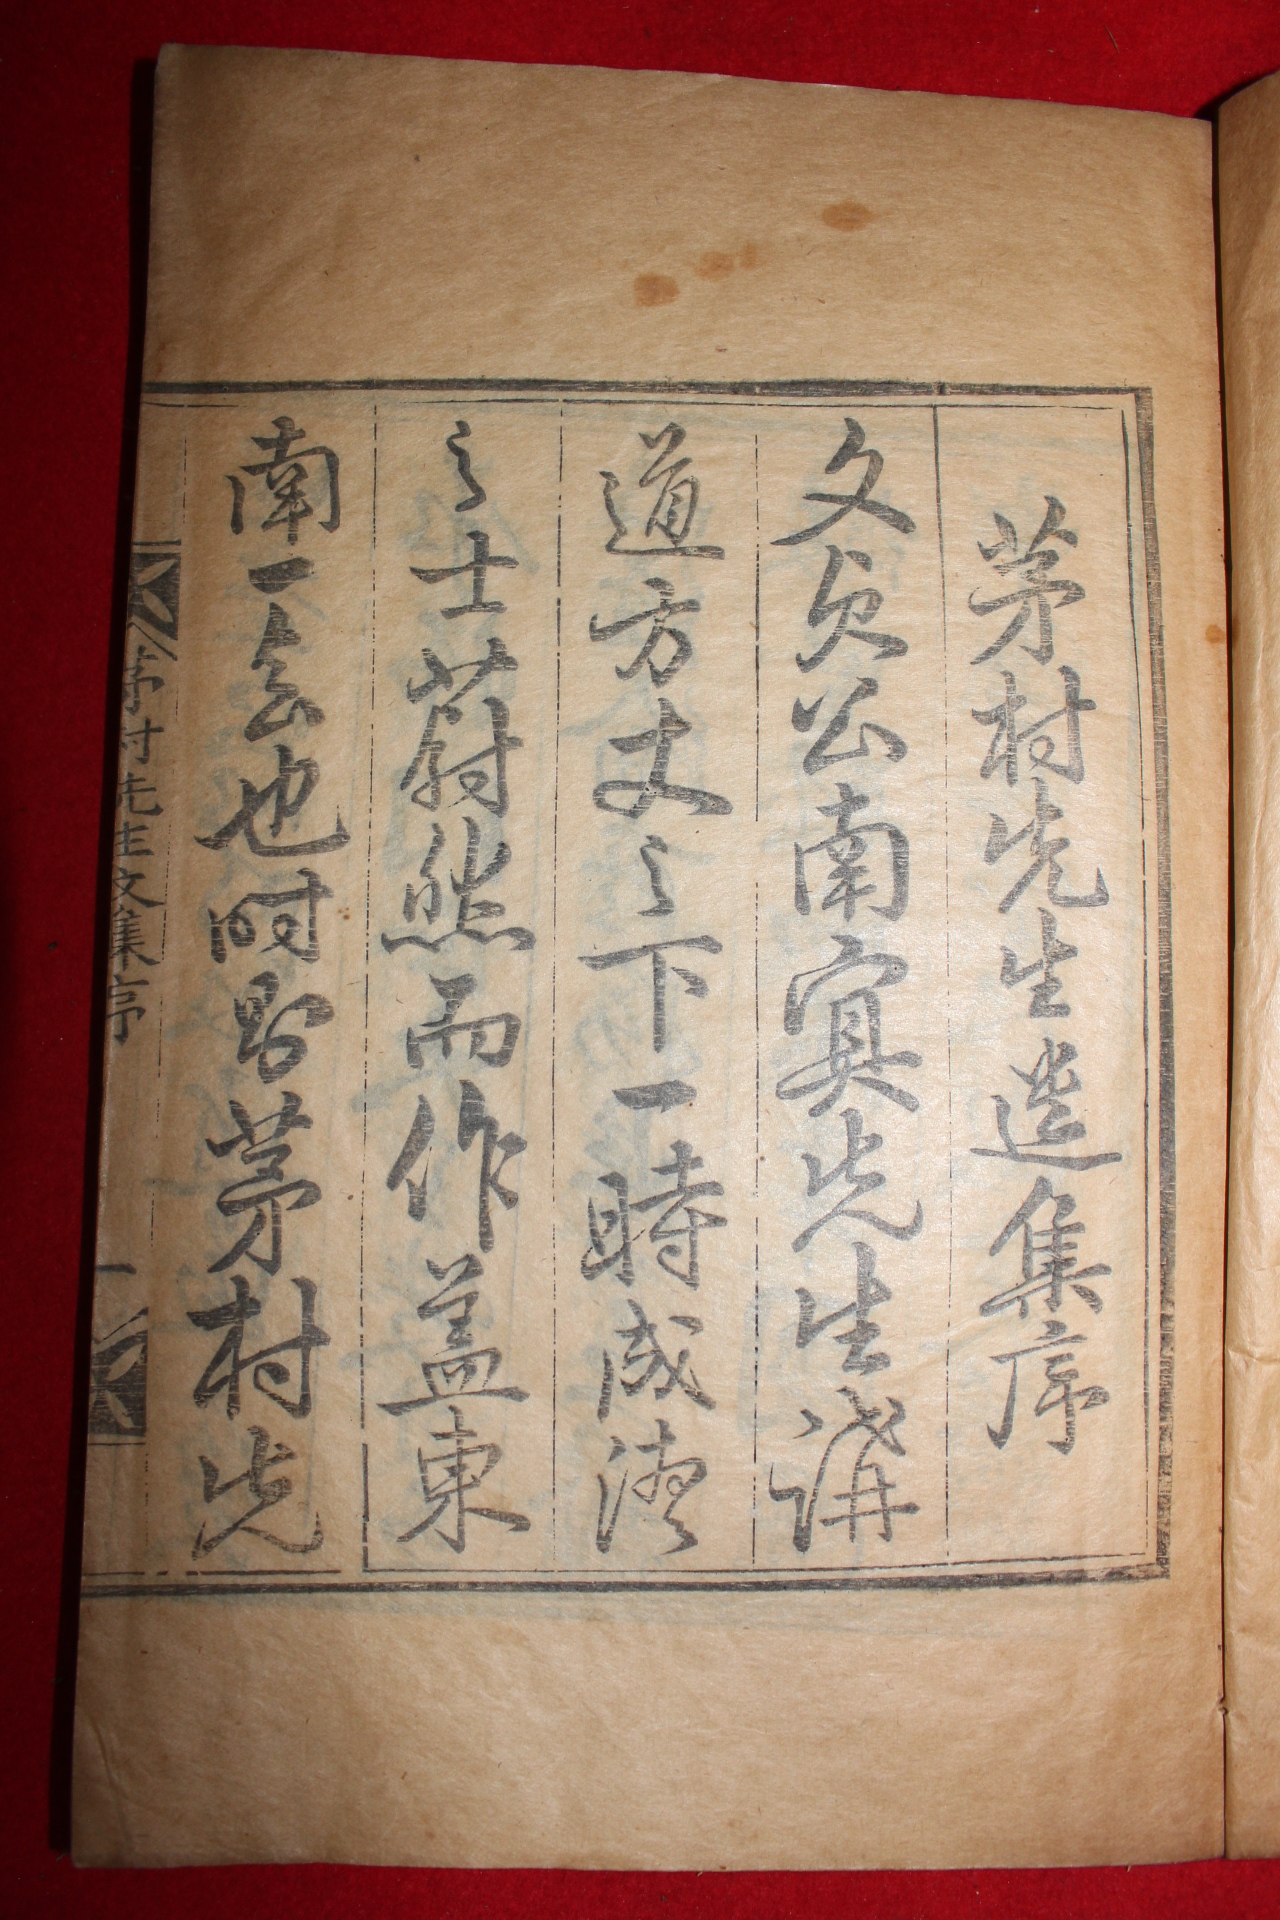 茅村先生遺集序
文貞公南冥先生講
道方丈之下一時成德
之士蔚然而作盖東
南一會也时則茅村先
茅村先生文集序 一